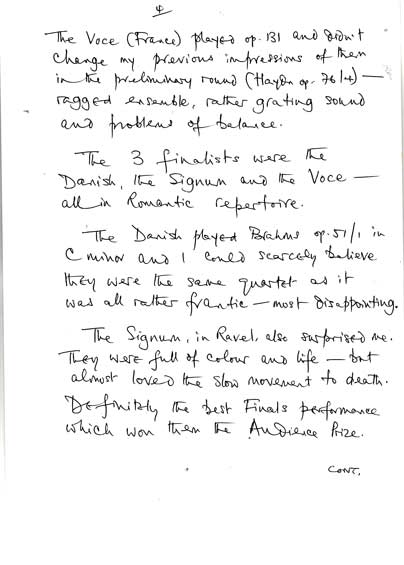 4
The Voce (France) played op. 131 and didn't
change my previous impressions of them
in the preliminary round (Haydn op. 76/4) —
ragged ensemble, rather grating sound
and problems of balance.
The 3 finalists were the
Danish, the Signum and the Voce —
all in Romantic repertoire.
The Danish played Brahms op. 51/1 in
C minor and I could scarcely believe
they were the same quartet as it
was all rather frantic — most disappointing.
The Signum, in Ravel, also surprised me.
They were full of colour and life — but
almost loved the slow movement to death.
Definitely the best Finals performance
which won them the Audience Prize.
CONT.